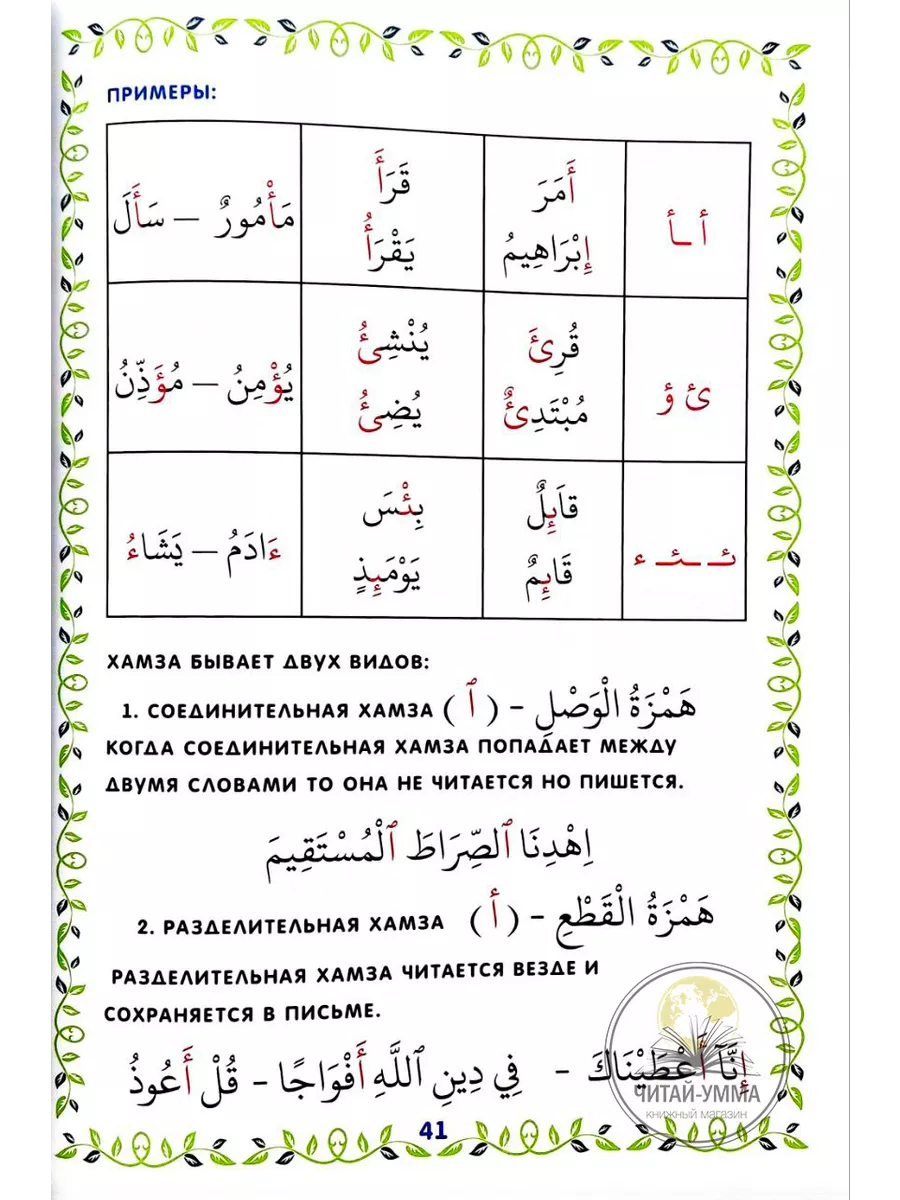 ПРИМЕРЫ:
أ ـأ
أَمَرَ
إِبْرَاهِيمُ
قَرَأَ
يَقْرَأُ
مَأْمُورٌ – سَأَلَ
ئ ؤ
قُرِئَ
مُبْتَدِئٌ
يُنْشِئُ
يُضِئُ
يُؤْمِنُ – مُؤَذِّنُ
ئـ ـئـ ء
قاَئِلٌ
قَائِمٌ
بِئْسَ
يَوْمَئِذٍ
ءَادَمُ – يَشَاءُ
ХАМЗА БЫВАЕТ ДВУХ ВИДОВ:
1. СОЕДИНИТЕЛЬНАЯ ХАМЗА ( ٱ ) - هَمْزَةُ الْوَصْلِ
КОГДА СОЕДИНИТЕЛЬНАЯ ХАМЗА ПОПАДАЕТ МЕЖДУ
ДВУМЯ СЛОВАМИ ТО ОНА НЕ ЧИТАЕТСЯ НО ПИШЕТСЯ.
اِهْدِنَا ٱلصِّرَاطَ ٱلْمُسْتَقِيمَ
2. РАЗДЕЛИТЕЛЬНАЯ ХАМЗА ( أ ) - هَمْزَةُ الْقَطْعِ
РАЗДЕЛИТЕЛЬНАЯ ХАМЗА ЧИТАЕТСЯ ВЕЗДЕ И
СОХРАНЯЕТСЯ В ПИСЬМЕ.
إِنَّآ أَعْطَيْنَاكَ - فِي دِينِ ٱللَّهِ أَفْوَاجًا - قُلْ أَعُوذُ
ЧИТАЙ-УММА
КНИЖНЫЙ МАГАЗИН
41